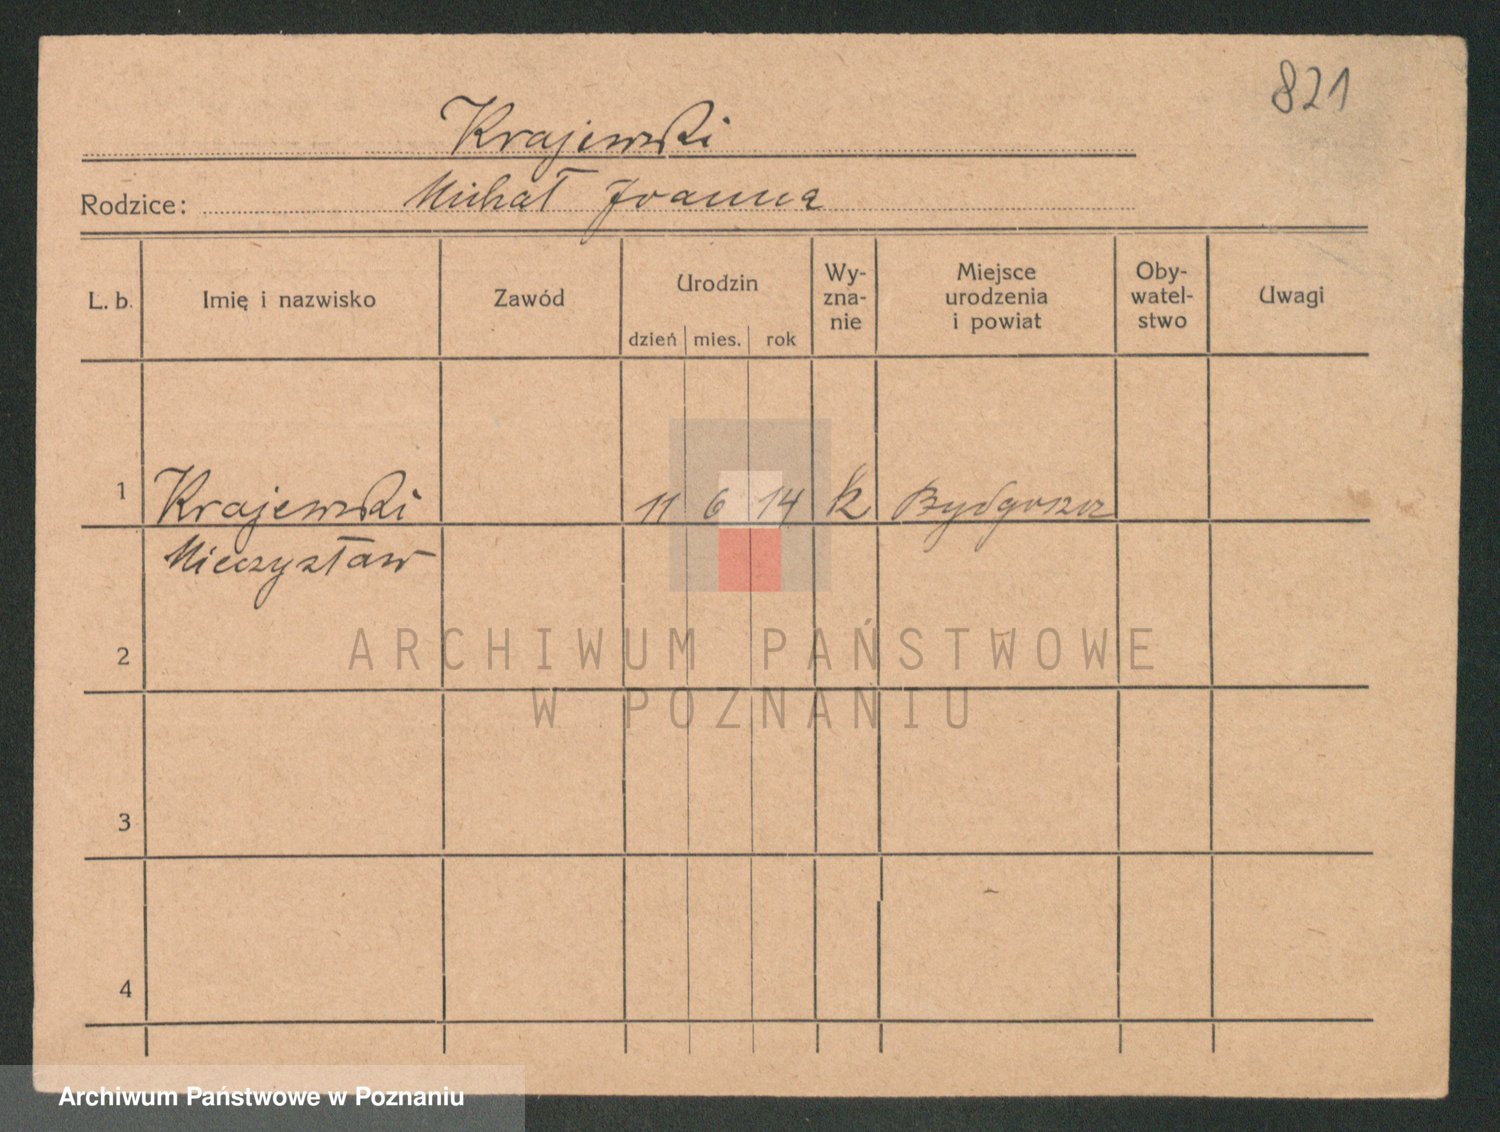 821
Krajewski
Rodzice: Michał Joanna
L. b.
Imię i nazwisko
Zawód
Urodzin
dzień mies. rok
Wy-
zna-
nie
Miejsce
urodzenia
i powiat
Oby-
watel-
stwo
Uwagi
1 Krajewski 11 6 14 k Bydgoszcz
Mieczysław
2
3
4
ARCHIWUM PAŃSTWOWE
W POZNANIU
Archiwum Państwowe w Poznaniu